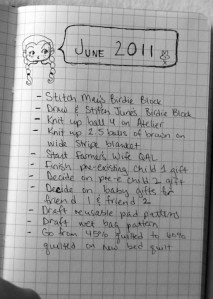 JUNE 2011
- Stitch May's Birdie Block
- Draw & Stitch June's Birdie Block
- Knit up ball 4 on Atelier
- Knit up 2.5 balls of brown on
wide stripe blanket
- Start Farmer's Wife QAL
- Finish pre-existing child 1 gift
- Decide on pre-e child 2 gift
- Decide on baby gifts for
friend 1 & friend 2
- Draft reusable pad patterns
- Draft wet bag pattern
- Go from 45% quilted to
quilted on new bed quilt